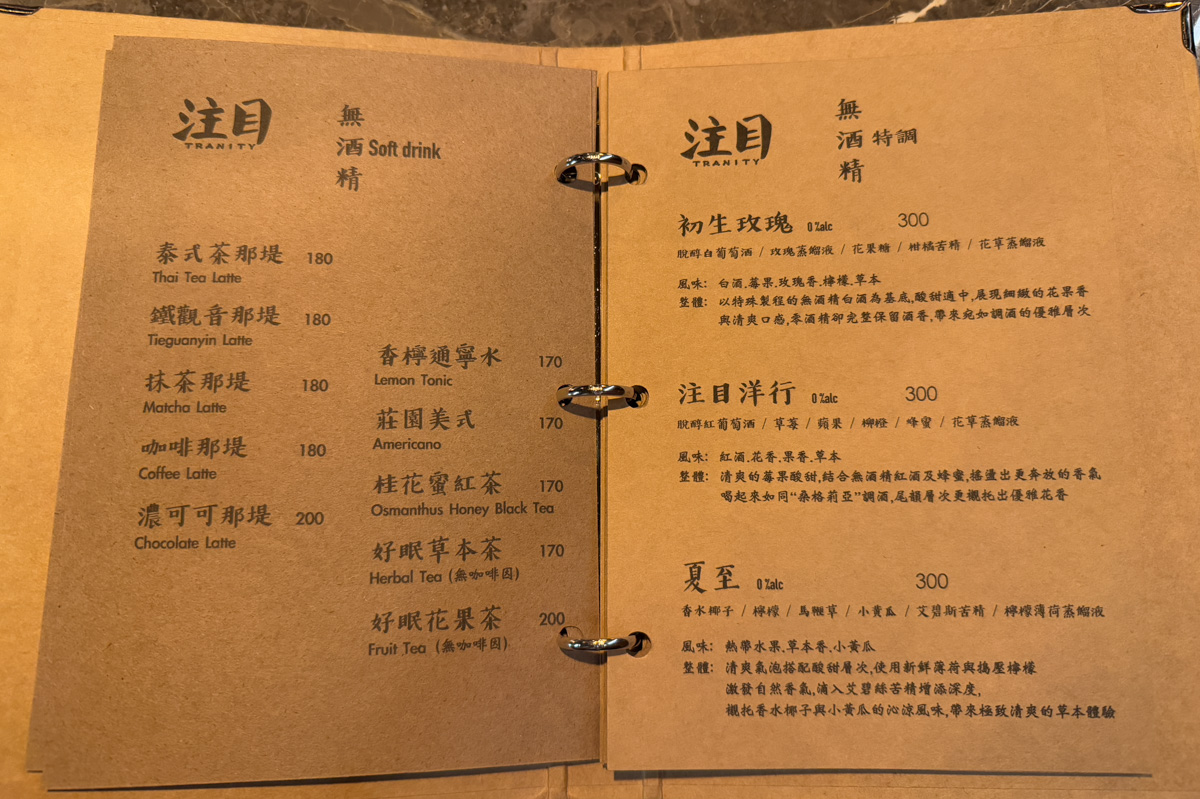 注目
TRANITY
無酒精 Soft drink
泰式茶那堤 180
Thai Tea Latte
鐵觀音那堤 180
Tieguanyin Latte
抹茶那堤 180
Matcha Latte
咖啡那堤 180
Coffee Latte
濃可可那堤 200
Chocolate Latte
香檸通寧水 170
Lemon Tonic
莊園美式 170
Americano
桂花蜜紅茶 170
Osmanthus Honey Black Tea
好眠草本茶 170
Herbal Tea (無咖啡因)
好眠花果茶 200
Fruit Tea (無咖啡因)
注目
TRANITY
無酒精 特調
初生玫瑰 0%alc 300
脫醇白葡萄酒 / 玫瑰蒸餾液 / 花果糖 / 柑橘苦精 / 花草蒸餾液
風味: 白酒.莓果.玫瑰香.檸檬.草本
整體: 以特殊製程的無酒精白酒為基底,酸甜適中,展現細緻的花果香
與清爽口感,零酒精卻完整保留酒香,帶來宛如調酒的優雅層次
注目洋行 0%alc 300
脫醇紅葡萄酒 / 草莓 / 蘋果 / 柳橙 / 蜂蜜 / 花草蒸餾液
風味: 紅酒.花香.果香.草本
整體: 清爽的莓果酸甜,結合無酒精紅酒及蜂蜜,搖盪出更奔放的香氣
喝起來如同“桑格莉亞”調酒,尾韻層次更襯托出優雅花香
夏至 0%alc 300
香水椰子 / 檸檬 / 馬鞭草 / 小黃瓜 / 艾碧斯苦精 / 檸檬薄荷蒸餾液
風味: 熱帶水果.草本香.小黃瓜
整體: 清爽氣泡搭配酸甜層次,使用新鮮薄荷與搗壓檸檬
激發自然香氣,滴入艾碧絲苦精增添深度,
襯托香水椰子與小黃瓜的沁涼風味,帶來極致清爽的草本體驗